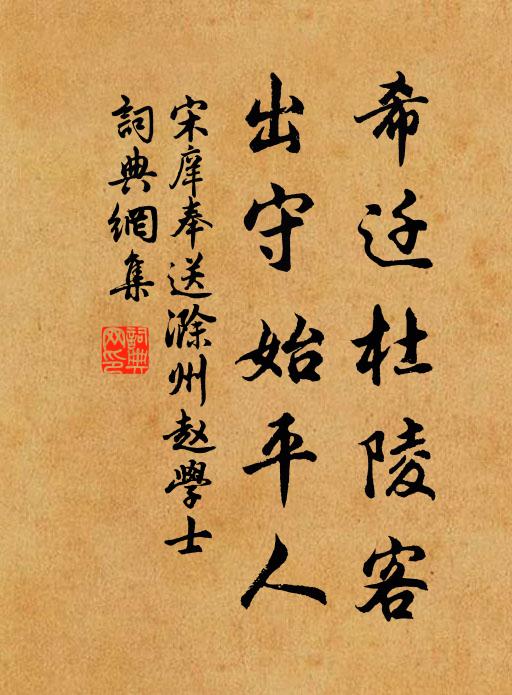 希迁杜陵客
出守始平人
宋庠奉送滁州赵學士
詞典網集
詞典
网印